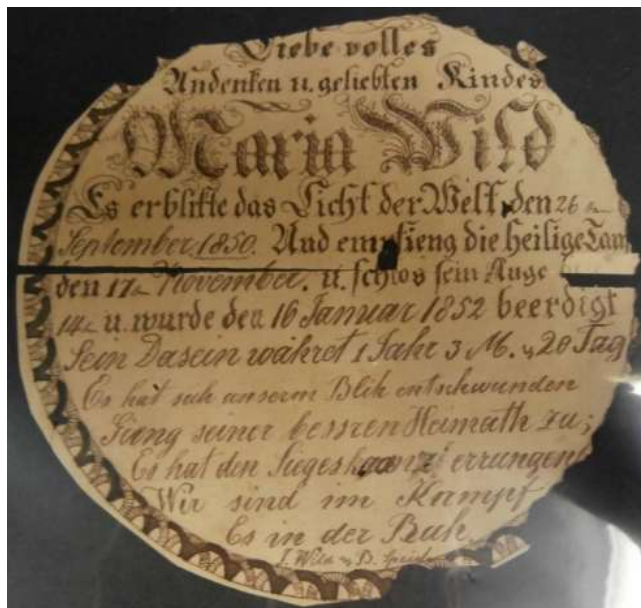 Liebevolles
Andenken u. geliebten Kindes
Maria Wild
Es erblikte das Licht der Welt, den 26
September 1850. Und empfieng die heilige Tau
den 17 November. u. schlos sein Auge
14 u. wurde den 16 Januar 1852 beerdigt
Sein Dasein währet 1 Jahr 3 M. 20 Tag
Es hat sich unserm Blik entschwunden
Gieng seiner bessren Heimath zu;
Es hat den Siegeskranz errungen
Wir sind im Kampf
Es in der Ruh.
J. Wild B.